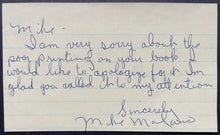 Mike-
I am very sorry about the
poor printing on your book I
would like to apologize for it I'm
glad you called it to my attention
Sincerely
Mike